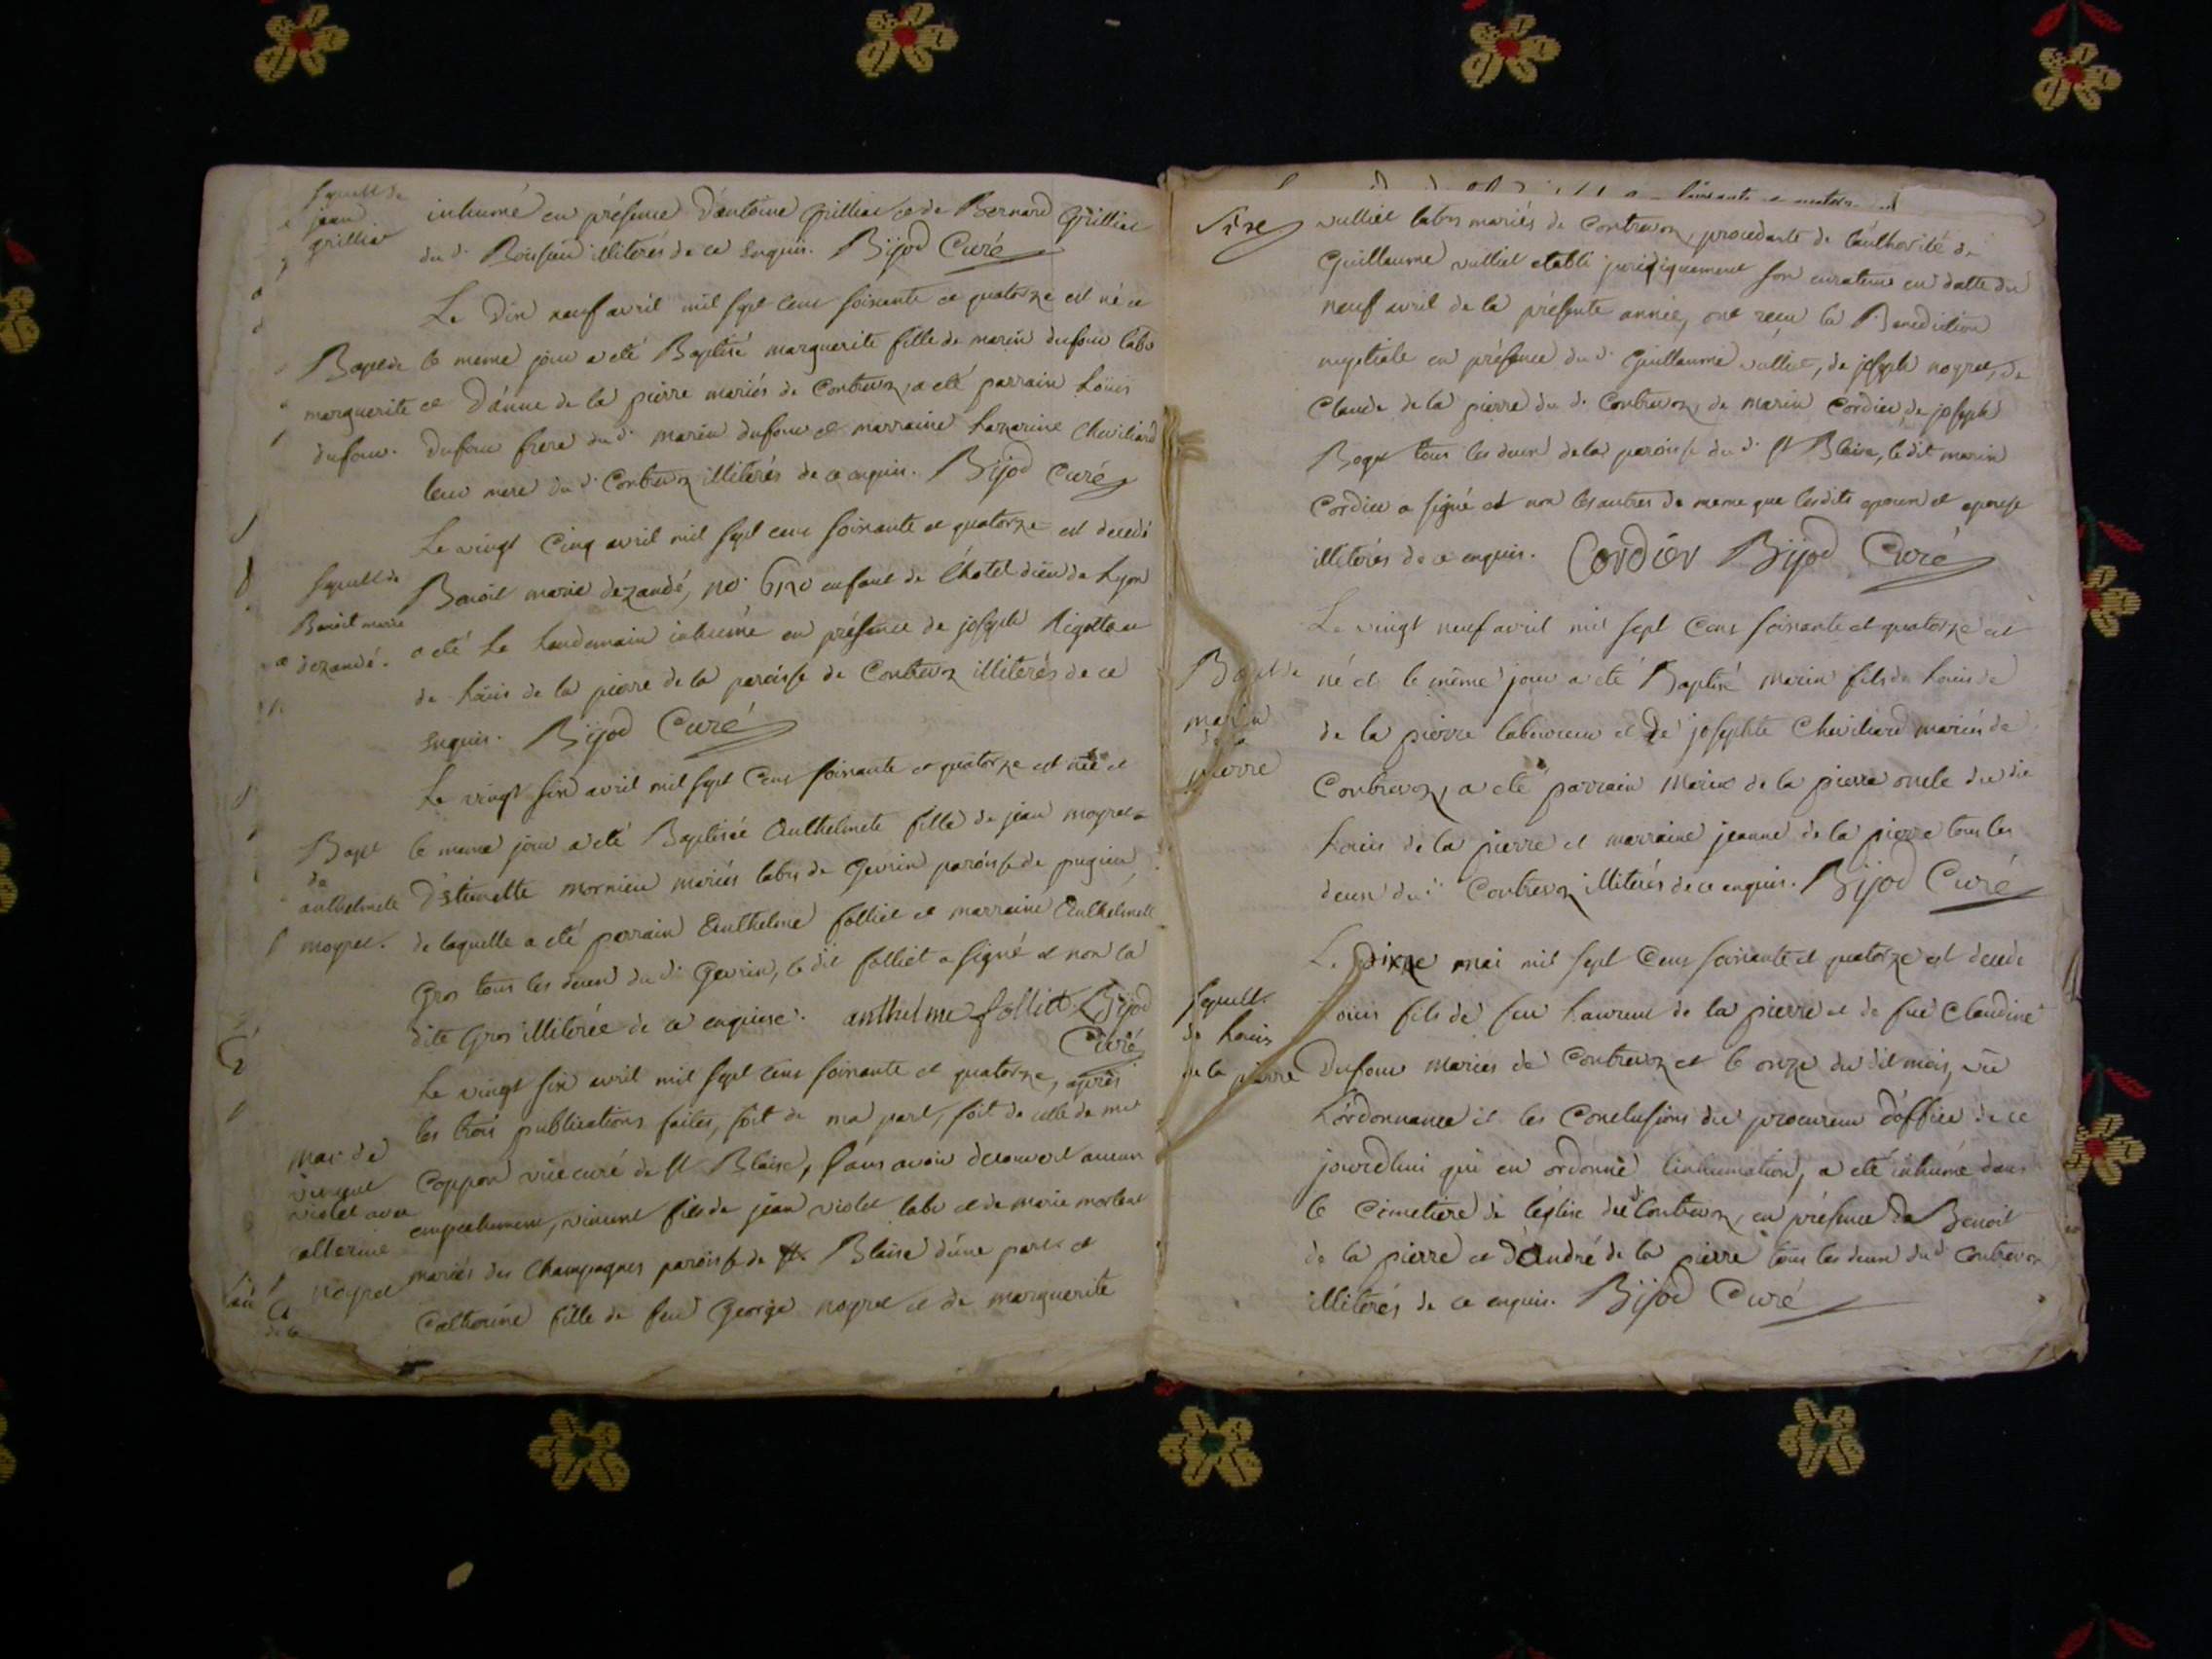 Sepult de
jean
grilliat
inhumé en présence d'antoine grilliat et de Bernard grilliat
du d. illiterés de ce enquis. Bijod Curé
Le dix neuf avril mil sept cens soixante et quatorze est né et
Bapt de
marguerite
dufour.
le meme jour a eté Baptisé marguerite fille de marin dufour labr
et d'anne de la pierre mariés de Contrevoz, a eté parrain Loüis
dufour frere du d. marin dufour et marraine Lazarine Chevillard
leur mere du d. Contrevoz illiterés de ce enquis. Bijod Curé
Le vingt Cinq avril mil sept cens soixante et quatorze est decedé
Sepult de
Benoit marie
dezandé.
Benoit marie dezandé, no. enfant de l'hotel dieu de Lyon
a eté le lendemain inhumé en présence de joseph Rigottier
de Loüis de la pierre de la paroisse de Contrevoz illiterés de ce
enquis. Bijod Curé
Le vingt six avril mil sept Cens soixante et quatorze est née et
Bapt
de
anthelmete
moyret.
le meme jour a eté Baptisée Anthelmete fille de jean moyret
d'Etiennette mornieu mariés labrs de Gevrin paroisse de pugieu,
de laquelle a eté parrain Anthelme folliet et marraine Anthelmete
Gros tous les deux du d. Gevrin, le dit folliet a signé et non la
dite Gros illiterée de ce enquise. anthelme folliet Bijod
Curé
Le vingt six avril mil sept cens soixante et quatorze, après
les trois publications faites, soit de ma part, soit de celle de mr
mar. de
vincent
violet avec
catterine
noyret
Coppon curé de St Blaise, sans avoir decouvert aucun
empechement, vincent fils de jean violet labr et de marie
mariés des Champagnes paroisse de St. Blaise d'une part et
Catherine fille de feu George noyret et de marguerite
vulliet labrs mariés de Contrevoz, procedante de l'authorité de
Guillaume vulliet etabli juridiquement son curateur en datte du
neuf avril de la présente année, ont reçu la Benediction
nuptiale en présence du d. Guillaume vulliet, de joseph noyret, de
Claude de la pierre du d. Contrevoz, de marin Cordier, de joseph
tous les deux de la paroisse du d. St Blaise, le dit marin
Cordier a signé et non les autres de meme que lesdits epoux et epouse
illiterés de ce enquis. Cordier Bijod Curé
Le vingt neuf avril mil sept Cens soixante et quatorze est
Bapt de
marin
de la
pierre
né et le même jour a eté Baptisé marin fils de Loüis de
de la pierre laboureur et de josephte Chevillard mariés de
Contrevoz, a eté parrain Marin de la pierre oncle du dit
Loüis de la pierre et marraine jeanne de la pierre tous les
deux du d. Contrevoz illiterés de ce enquis. Bijod Curé
Le dixze mai mil sept Cens soixante et quatorze est decedé
Sepult.
de Loüis
de la pierre
Loüis fils de feu Laurent de la pierre et de fue Claudine
Dufour mariés de Contrevoz et le onze du dit mois, vû
l'ordonnance et les Conclusions du procureur d'office de ce
jourdhui qui en ordonne l'inhumation, a eté inhumé dans
le Cimetière de l'église de Contrevoz, en présence de Benoit
de la pierre et d'André de la pierre tous les deux du d. Contrevoz
illiterés de ce enquis. Bijod Curé